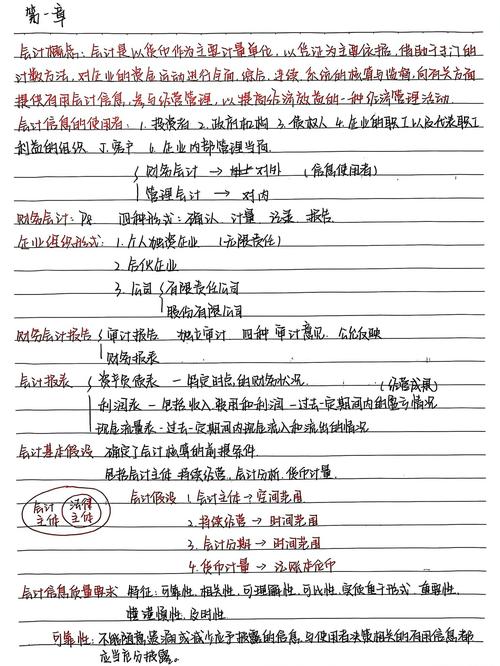 第一章
会计概念：会计是以货币作为主要计量单位，以凭证为主要依据，借助于专门的
计数方法，对企业的资金运动进行全面、综合、连续、系统的核算与监督，向有关方面
提供有用会计信息，参与经营管理，以提高经济效益的一种经济管理活动.
会计信息的使用者：1.投资者 2.政府机构 3.债权人 4.企业的职工以及代表职工
利益的组织 5.客户 6.企业内部管理当局
财务会计 → 对外 （信息使用者）
管理会计 → 对内
财务会计： 四种形式：确认、计量、记录、报告
企业组织形式：1.个人独资企业（无限责任）
2.合伙企业
3.公司 有限责任公司
股份有限公司
财务会计报告 审计报告 独立审计 四种审计意见 公允反映
财务报表
会计报表 资产负债表 — 特定时点的财务状况 （经营成果）
利润表 — 包括收入、费用和利润 — 过去一定期间内的盈亏情况
现金流量表 — 过去一定期间内现金流入和流出的情况
会计基本假设 确定了会计核算的前提条件
包括会计主体 持续经营，会计分期、货币计量.
会计主体 法律主体 会计假设 1.会计主体 → 空间范围
2.持续经营 → 时间范围
3.会计分期 → 时间范围
4.货币计量 →
会计信息质量要求 特征：可靠性、相关性、可理解性、可比性、实质重于形式、重要性、
谨慎性、及时性
可靠性：不能随意遗漏或减少应予披露的信息，与使用者决策相关的有用信息都
应当充分披露。